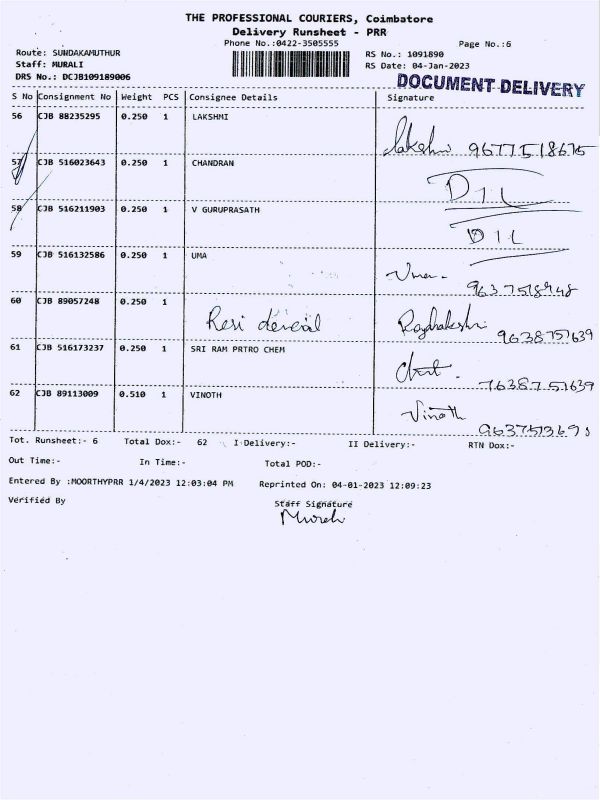 THE PROFESSIONAL COURIERS, Coimbatore
Delivery Runsheet - PRR
Phone No.:0422-3505555 Page No.:6
Route: SUNDAKAMUTHUR RS No.: 1091890
Staff: MURALI RS Date: 04-Jan-2023
DRS No.: DCJB109189006 DOCUMENT DELIVERY
S No Consignment No Weight PCS Consignee Details Signature
56 CJB 88235295 0.250 1 LAKSHMI Lakshmi 9677518675
57 CJB 516023643 0.250 1 CHANDRAN DIL
58 CJB 516211903 0.250 1 V GURUPRASATH DIL
59 CJB 516132586 0.250 1 UMA Uma 9637518948
60 CJB 89057248 0.250 1 9638757639
61 CJB 516173237 0.250 1 SRI RAM PRTRO CHEM 7638757639
62 CJB 89113009 0.510 1 VINOTH Vinoth
Tot. Runsheet:- 6 Total Dox:- 62 I Delivery:- II Delivery:- RTN Dox:-
Out Time:- In Time:- Total POD:-
Entered By :MOORTHYPRR 1/4/2023 12:03:04 PM Reprinted On: 04-01-2023 12:09:23
Verified By Staff Signature